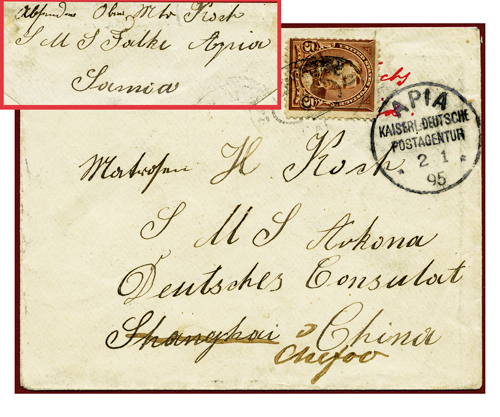 Absender Ober Mtr Koch
S M S Falke Apia
Samia
5 5
APIA
KAISERL. DEUTSCHE
POSTAGENTUR
2 1
95
Matrosen H Koch
S M S Arkona
Deutsches Consulat
Shanghai China
Chefoo